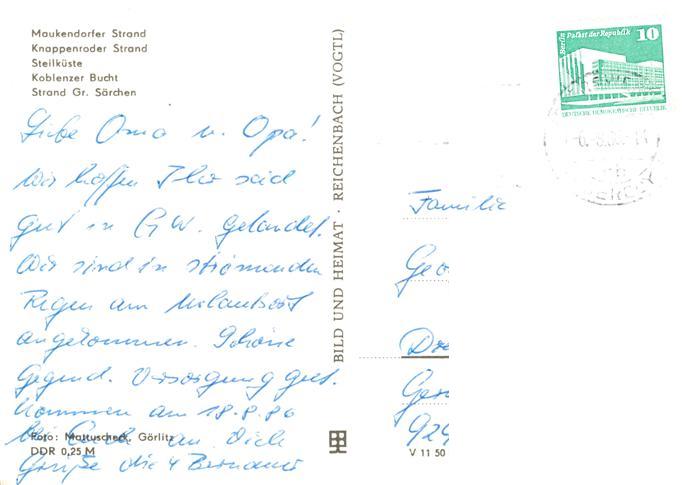 Maukendorfer Strand
Knappenroder Strand
Steilküste
Koblenzer Bucht
Strand Gr. Särchen
Liebe Oma u. Opa!
Wir hoffen Ihr seid
gut in GW. gelandet.
Wir sind in strömenden
Regen am Urlaubsort
angekommen. Schöne
Gegend. Versorgung gut.
Kommen am 18.8.86
bei Euch an. Dich
Grüße die 4
Foto: Mattuscheck, Görlitz
DDR 0,25 M
BILD UND HEIMAT · REICHENBACH (VOGTL)
Berlin Palast der Republik
10
DEUTSCHE DEMOKRATISCHE REPUBLIK
Familie
Geo
Dre
Ger
924
V 11 50